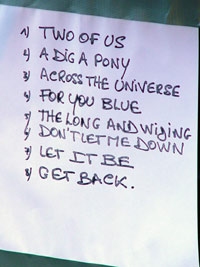 1) TWO OF US
2) A DIG A PONY
3) ACROSS THE UNIVERSE
4) FOR YOU BLUE
5) THE LONG AND WIDING
6) DON'T LET ME DOWN
7) LET IT BE
8) GET BACK.